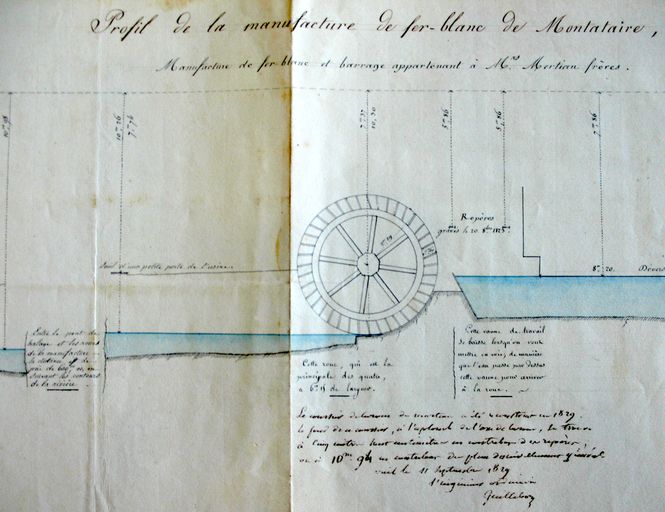 Profil de la manufacture de fer-blanc de Montataire,
Manufacture de fer-blanc et barrage appartenant à M.rs Mertian frères.
10.m 98
10.m 26
7.m 76
7.m 37
10.20
5.m 86
5.m 86
7.m 86
Repères
gravés le 20 8.bre 1825.
Seuil d'une petite porte de l'usine
8.m 20. Dévers
Entre le pont de
halage et les roues
de la manufacture
la distance est de
suivant les contours
de la rivière
Cette roue, qui est la
principale des quatre,
a 6.m de largeur.
Cette vanne de travail
se baisse lorsqu'on veut
mettre en jeu, de manière
que l'eau passe par dessus
cette vanne pour arriver
à la roue.
Le coursier de la roue a été reconstruit en 1829.
le fond de ce coursier, à l'aplomb de l'axe de la roue, se trouve
à cinq mètres en contrebas des repères,
ou à 10.m en contrebas du plan général
le 11 Septembre 1829
l'ingénieur